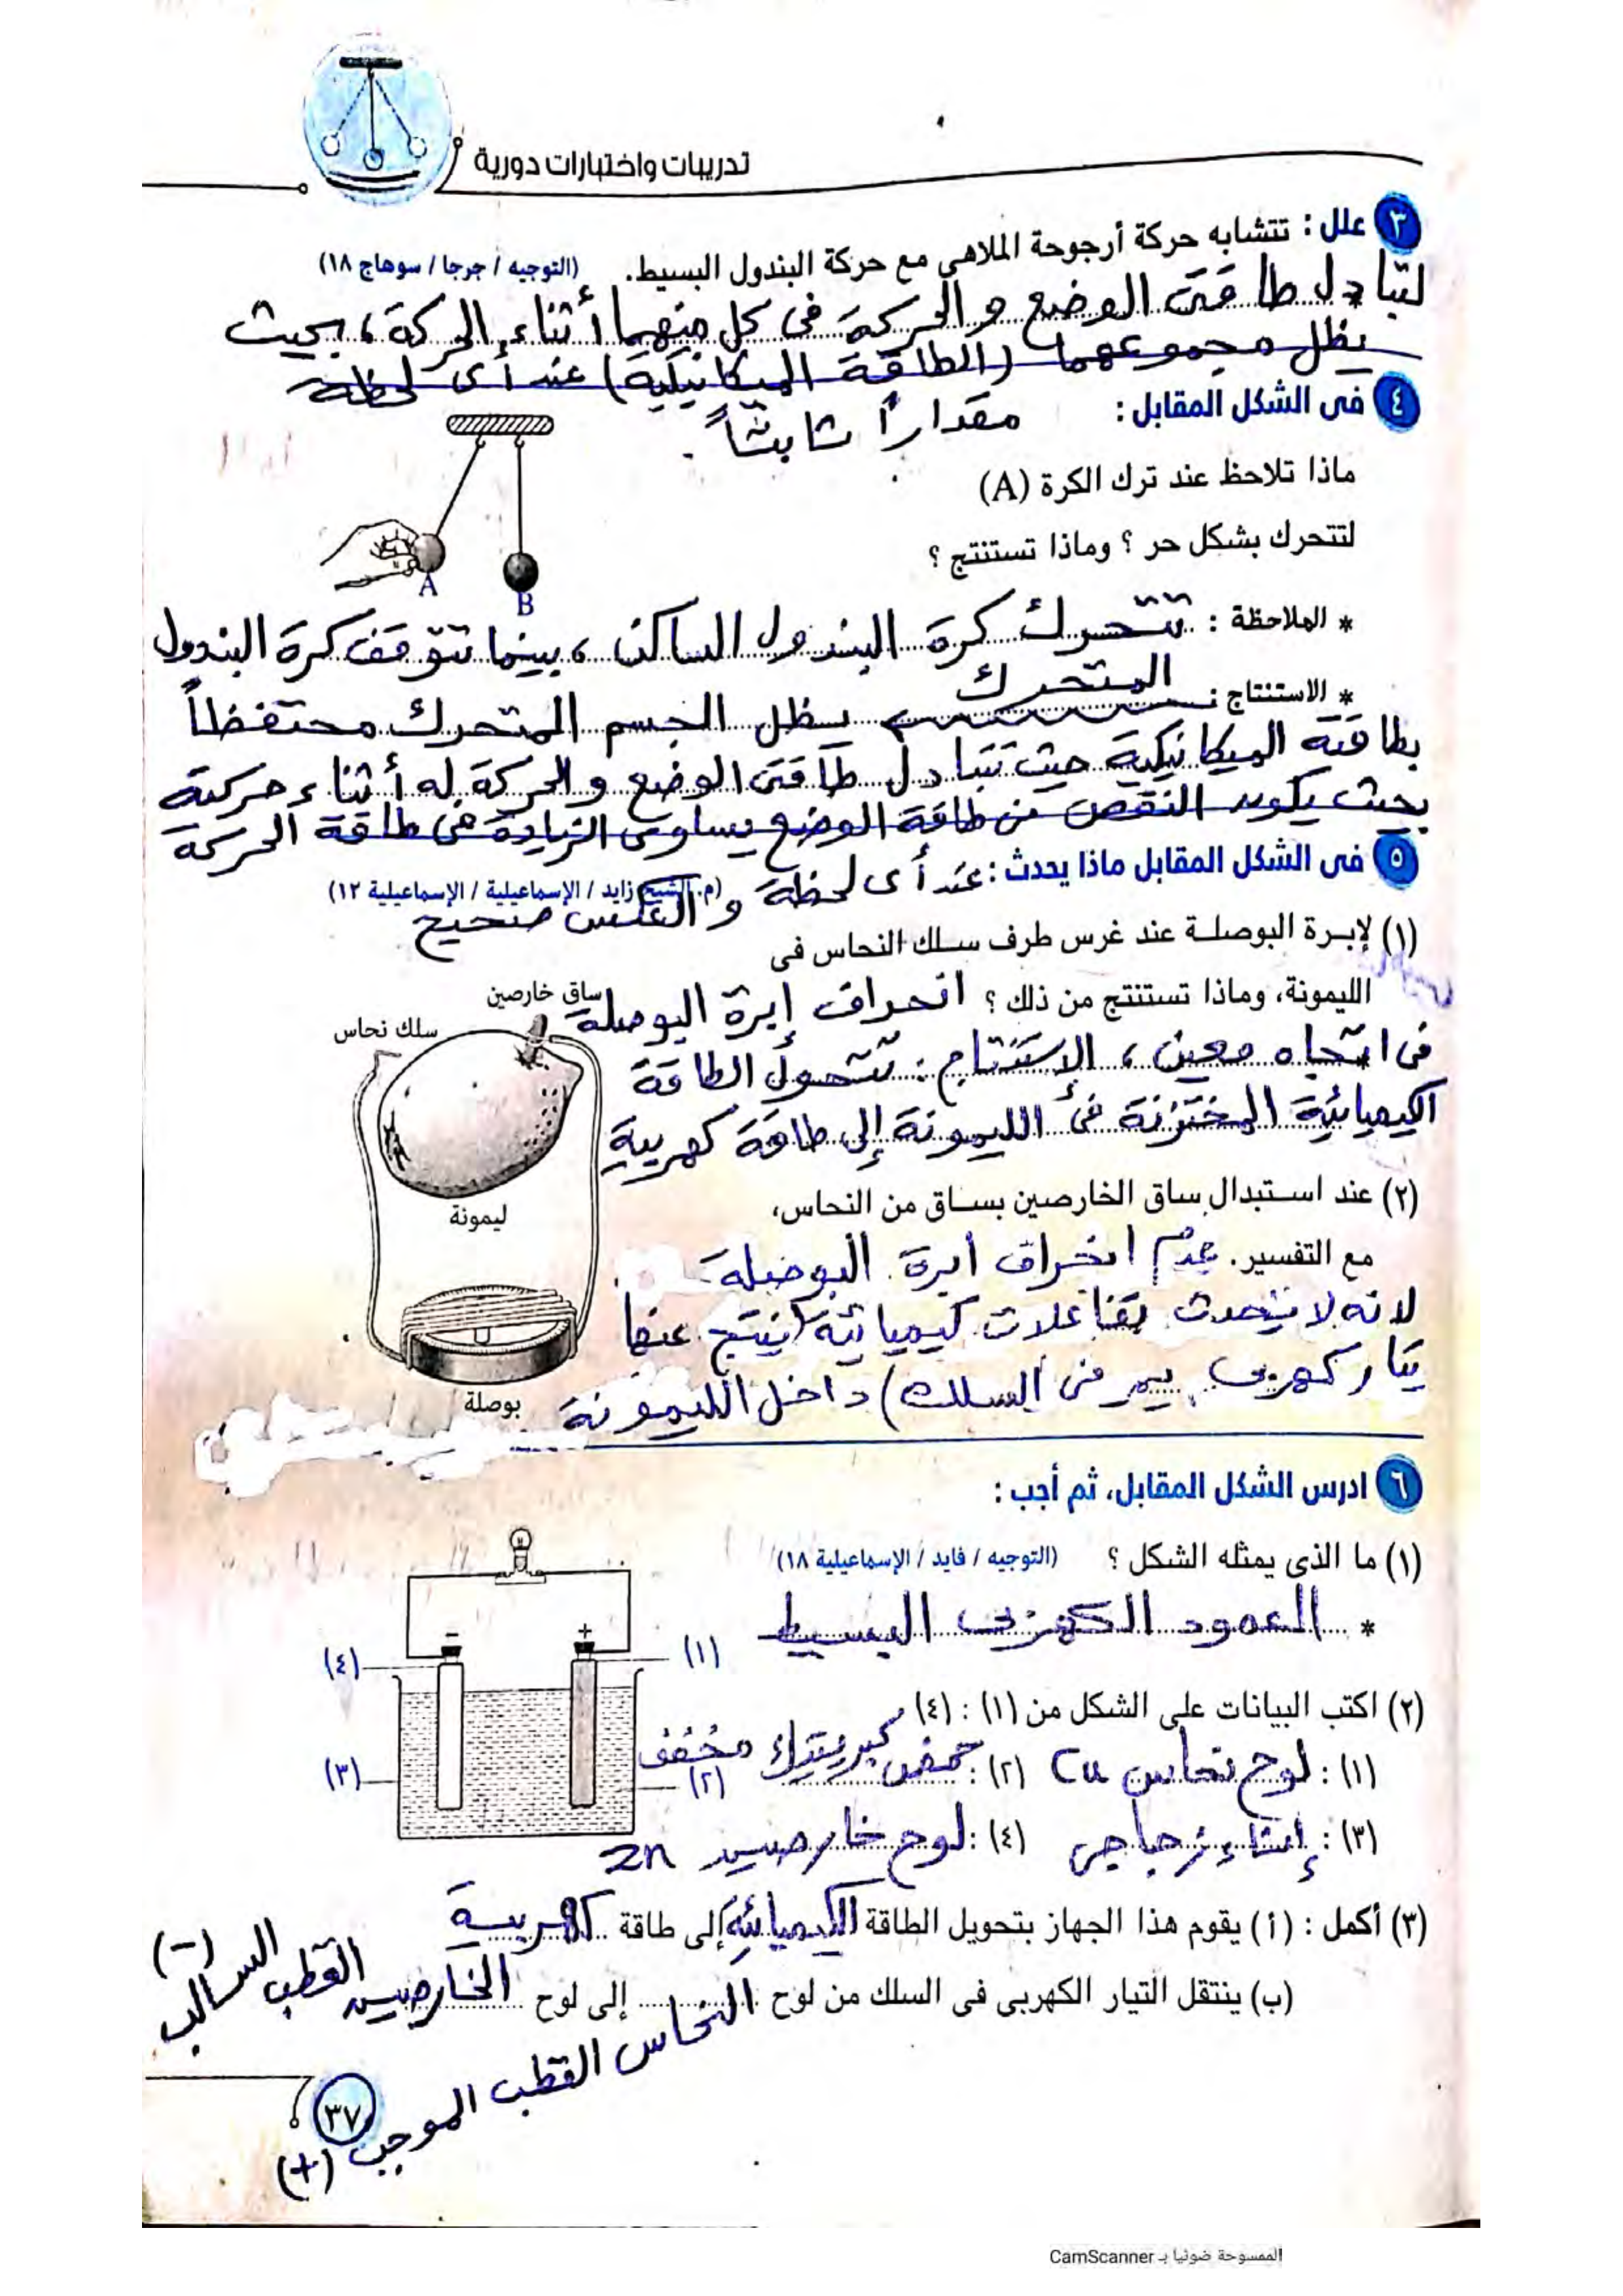 تدريبات واختبارات دورية
٣ علل : تتشابه حركة أرجوحة الملاهى مع حركة البندول البسيط. (التوجيه / جرجا / سوهاج ١٨)
لتبادل طاقتى الوضع والحركة فى كل منهما أثناء الحركة ، بحيث
يظل مجموعهما (الطاقة الميكانيكية) عند أى لحظة
مقداراً ثابتاً .
٤ فى الشكل المقابل :
ماذا تلاحظ عند ترك الكرة (A)
لتتحرك بشكل حر ؟ وماذا تستنتج ؟
A
B
* الملاحظة : تتحرك كرة البندول الساكن ، بينما تتوقف كرة البندول
المتحرك
* الاستنتاج : يظل الجسم المتحرك محتفظاً
بطاقته الميكانيكية حيث تتبادل طاقتى الوضع والحركة له أثناء حركته
بحيث يكون النقص من طاقة الوضع يساوى الزيادة فى طاقة الحركة
عند أى لحظة والعكس صحيح
٥ فى الشكل المقابل ماذا يحدث : (م. الشيخ زايد / الإسماعيلية / الإسماعيلية ١٢)
(١) لإبرة البوصلة عند غرس طرف سلك النحاس فى
الليمونة، وماذا تستنتج من ذلك ؟ انحراف إبرة البوصلة
فى اتجاه معين ، الاستنتاج : تتحول الطاقة
الكيميائية المختزنة فى الليمونة إلى طاقة كهربية
ساق خارصين
سلك نحاس
ليمونة
بوصلة
(٢) عند استبدال ساق الخارصين بساق من النحاس،
مع التفسير. عدم انحراف ابرة البوصلة
لانه لا يحدث تفاعلات كيميائية (ينتج عنها
تيار كهربى يمر فى السلك) داخل الليمونة
٦ ادرس الشكل المقابل، ثم أجب :
(١) ما الذى يمثله الشكل ؟ (التوجيه / فايد / الإسماعيلية ١٨)
* العمود الكهربى البسيط
− +
(١)
(٢)
(٣)
(٤)
(٢) اكتب البيانات على الشكل من (١) : (٤)
(١) : لوح نحاس Cu (٢) : حمض كبريتيك مخفف
(٣) : إناء زجاجى (٤) : لوح خارصين Zn
(٣) أكمل : (أ) يقوم هذا الجهاز بتحويل الطاقة الكيميائية إلى طاقة كهربية
(ب) ينتقل التيار الكهربى فى السلك من لوح النحاس إلى لوح الخارصين
القطب السالب (−)
القطب الموجب (+)
٣٧
الممسوحة ضوئيا بـ CamScanner